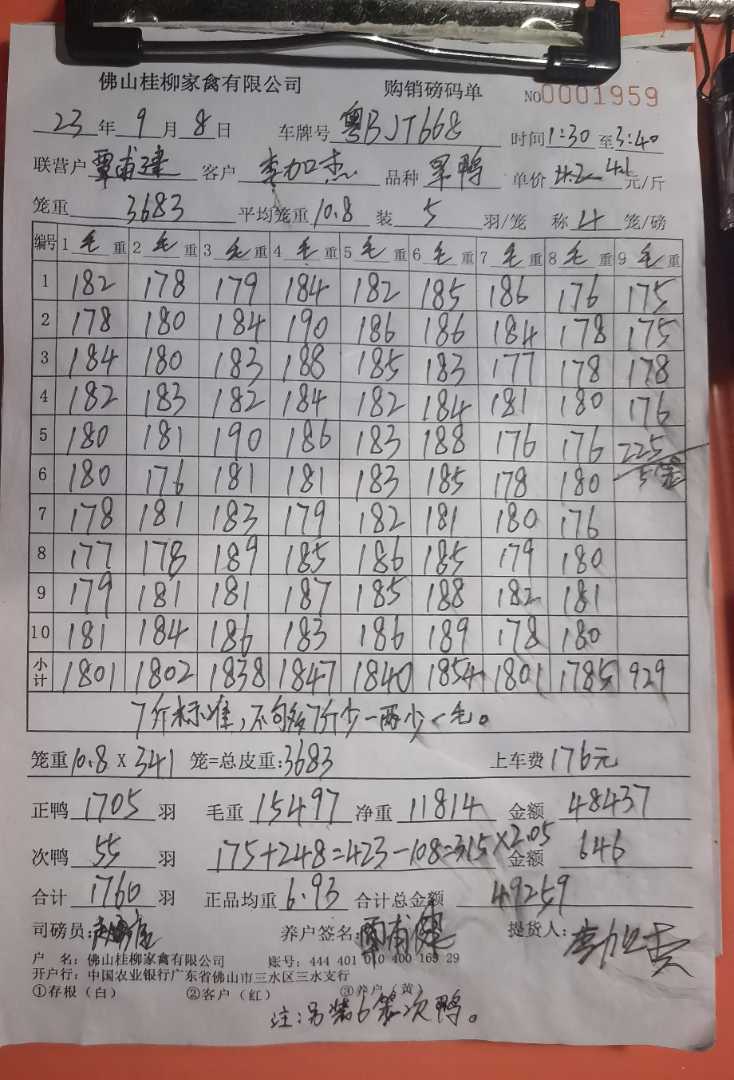 佛山桂柳家禽有限公司 购销磅码单 NO0001959
23年9月8日 车牌号 粤BJT668 时间1:30至3:40
联营户 覃甫建 客户 李加杰 品种 单价 元/斤
笼重 3683 平均笼重10.8 装 5 羽/笼 称 4 笼/磅
编号 1 毛 重 2 毛 重 3 毛 重 4 毛 重 5 毛 重 6 毛 重 7 毛 重 8 毛 重 9 毛 重
1 182 178 179 184 182 185 186 176 175
2 178 180 184 190 186 186 184 178 175
3 184 180 183 188 185 183 177 178 178
4 182 183 182 184 182 184 181 180 176
5 180 181 190 186 183 188 176 176 225
6 180 176 181 181 183 185 178 180
7 178 181 183 179 182 181 180 176
8 177 178 189 185 186 185 179 180
9 179 181 181 187 185 188 182 181
10 181 184 186 183 186 189 178 180
小计 1801 1802 1838 1847 1840 1854 1801 1785 929
7斤标准,不够7斤少一两少一毛。
笼重10.8 X 341 笼=总皮重:3683 上车费176元
正鸭 1705 羽 毛重 15497 净重 11814 金额 48437
次鸭 55 羽 175+248=423-108=315×2.05 金额 646
合计 1760 羽 正品均重 6.93 合计总金额 49259
司磅员: 养户签名: 覃甫健 提货人: 李加杰
户 名: 佛山桂柳家禽有限公司 账号: 444 401 010 400 169 29
开户行: 中国农业银行广东省佛山市三水区三水支行
①存根(白) ②客户(红) ③养户(黄)
注:另装6笼次鸭。